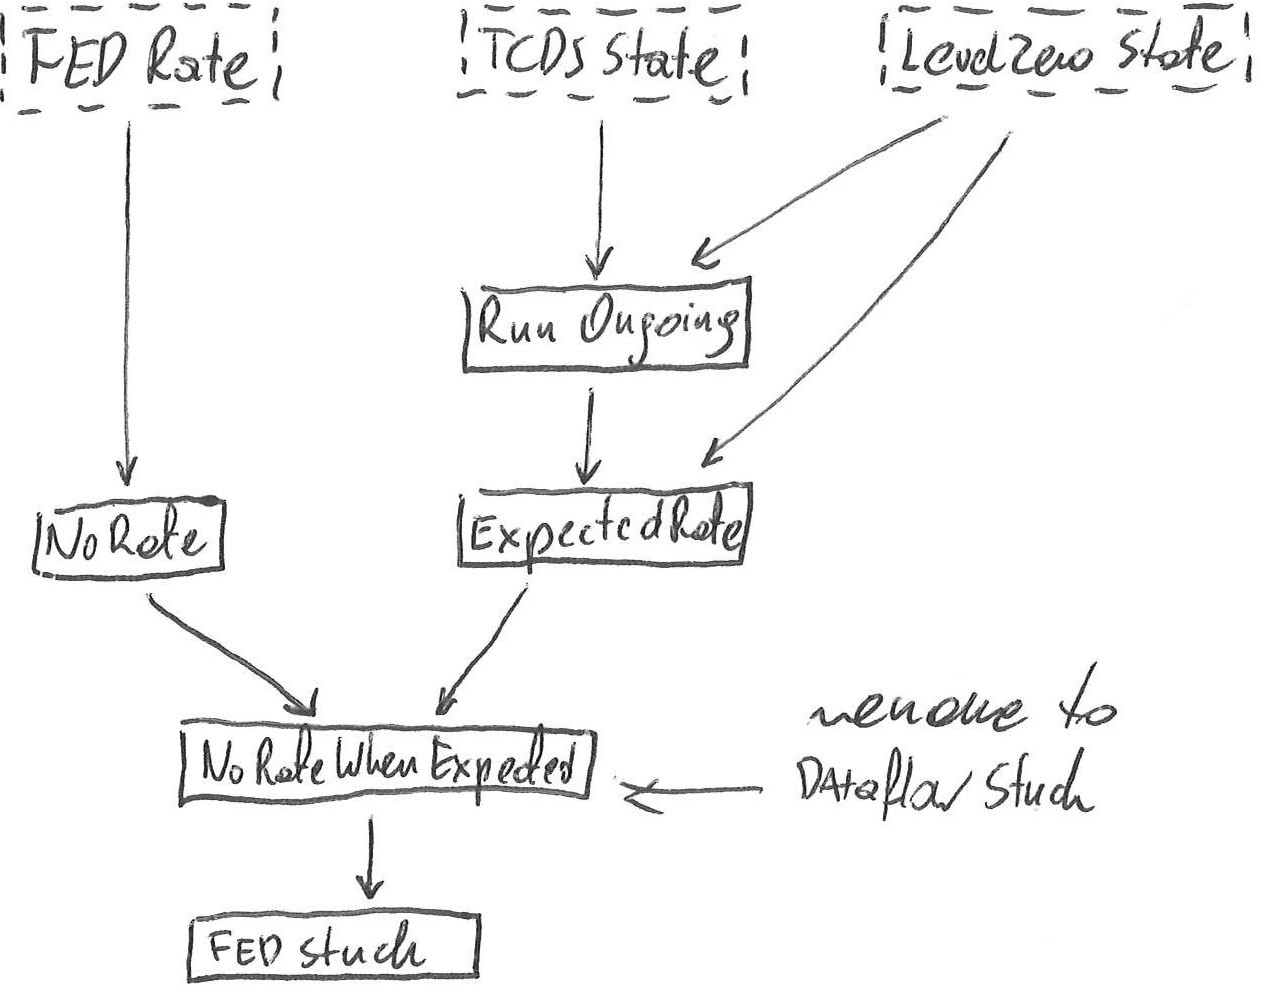 FED Rate
TCDS State
LevelZero State
Run Ongoing
No Rate
ExpectedRate
No Rate When Expected
rename to
DAtaflow Stuck
FED stuck